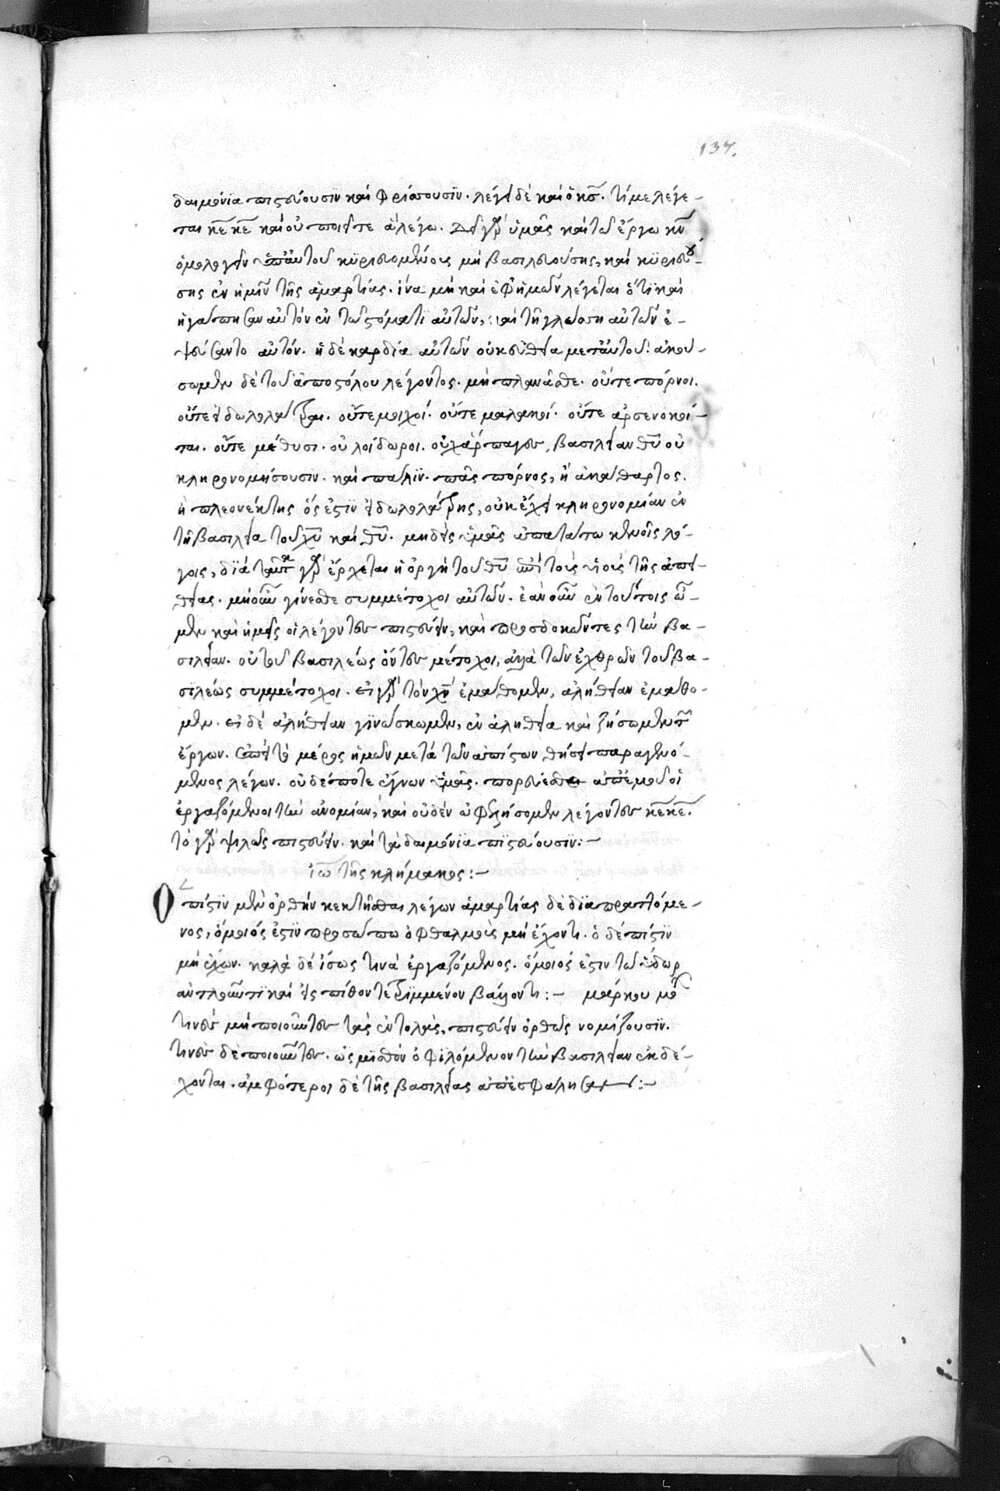 137.
δαιμόνϊα πιστεύουσιν καὶ φρίσσουσϊν. λέγει δὲ καὶ ὁ κς̅. τί με λέγε-
ται κε̅ κε̅ καὶ οὐ ποιεῖτε ἃ λέγω. δεῖ γὰρ ὑμᾶς καὶ τῶ ἔργω κν̅
ὁμολογεῖν ὑπ' αὐτοῦ κϋριευομένους μὴ βασιλευούσης, καὶ κϋριευού-
σης ἐν ἡμῖν τῆς ἁμαρτίας. ἵνα μὴ καὶ ἐφ' ἡμῶν λέγεται ὅτϊ καὶ
ἠγάπησαν αὐτὸν ἐν τῶ στόματϊ αὐτῶν, καὶ τῆ γλώσση αὐτῶν ἐ-
ψεύσαντο αὐτόν. ἡ δὲ καρδία αὐτῶν οὐκ εὐθεῖα μετ' αὐτοῦ. ἀκού-
σωμεν δὲ τοῦ ἀποστόλου λέγοντος. μὴ πλανᾶσθε. οὔτε πόρνοι.
οὔτε εἰδωλολάτραι. οὔτε μοιχοί. οὔτε μαλακοί. οὔτε ἀρσενοκοῖ-
ται. οὔτε μέθυσι. οὐ λοίδωροι. οὐχ ἅρπαγες, βασιλείαν θυ̅ οὐ
κληρονομήσουσιν. καὶ πάλϊν. πᾶς πόρνος, ἢ ἀκάθαρτος.
ἢ πλεονέκτης ὅς ἐστιν εἰδωλολάτρης, οὐκ ἔχει κληρονομίαν ἐν
τῆ βασιλεία τοῦ χυ̅ καὶ θυ̅. μηδεὶς ὑμᾶς ἀπατάτω κενοῖς λό-
γοις, δϊὰ ταῦτα γὰρ ἔρχεται ἡ ὀργὴ τοῦ θυ̅ ἐπὶ τοὺς υἱοὺς τῆς ἀπει-
θείας. μὴ οὖν γίνεσθε συμμέτοχοι αὐτῶν. ἐὰν οὖν ἐν τούτοις ὦ-
μεν καὶ ἡμεῖς οἱ λέγοντες πιστεύειν, καὶ προσδοκῶντες τὴν βα-
σιλείαν. οὐ τοῦ βασιλέως ὄντες μέτοχοι, ἀλλὰ τῶν ἐχθρῶν τοῦ βα-
σϊλέως συμμέτοχοι. εἰ γὰρ τὸν χν̅ ἐμάθομεν, ἀλήθειαν ἐμάθο-
μεν. εἰ δὲ ἀλήθειαν γϊνώσκωμεν, ἐν ἀληθεία καὶ ζήσωμεν τῶν
ἔργων. ἐπεὶ τὸ μέρος ἡμῶν μετὰ τῶν ἀπίστων θήσει παραγενό-
μενος λέγων. οὐδέποτε ἔγνων ὑμᾶς. πορεύεσθε ἀπ' ἐμοῦ οἱ
ἐργαζόμενοι τὴν ἀνομίαν, καὶ οὐδὲν ὠφελήσομεν λέγοντες κε̅ κε̅.
τὸ γὰρ ψιλῶς πιστεύειν. καὶ τὰ δαιμόνϊα πϊστεύουσιν:-
ἰω̅ τῆς κλήμακος:-
Ὁ πίστϊν μὲν ὀρθὴν κεκτῆσθαι λέγων ἁμαρτίας δὲ δϊαπραττόμε-
νος, ὅμοιός ἐστϊν προσώπω ὀφθαλμοὺς μὴ ἔχοντι. ὁ δὲ πίστϊν
μὴ ἔχων. καλὰ δὲ ἴσως τινὰ ἐργαζόμενος. ὅμοιός ἐστιν τῶ ὕδωρ
ἀντλοῦντϊ καὶ εἰς πίθον τετρϊμμένον βάλλοντι:- μάρκου μο
τινὲς μὴ ποιοῦντες τὰς ἐντολὰς, πιστεύειν ὀρθῶς νομίζουσϊν.
τινὲς δὲ ποιοῦντες. ὡς μϊσθὸν ὀφϊλόμενον τὴν βασιλείαν ἐκδέ-
χονται. ἀμφότεροι δὲ τῆς βασιλείας ἀπεσφάλησαν:-